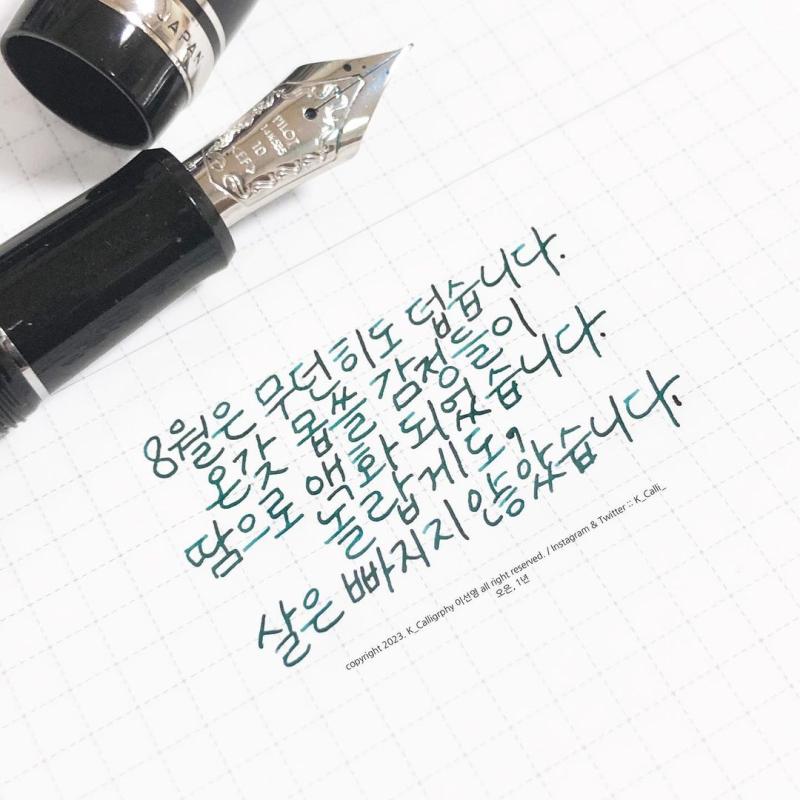 JAPAN
PILOT
14K585
10
<FM>
8월은 무던히도 덥습니다.
온갖 몹쓸 감정들이
땀으로 액화 되었습니다.
놀랍게도,
살은 빠지지 않았습니다.
copyright 2023. K_Calligrphy 이선영 all right reserved. / Instagram & Twitter :: K_Calli_
오은, 1년